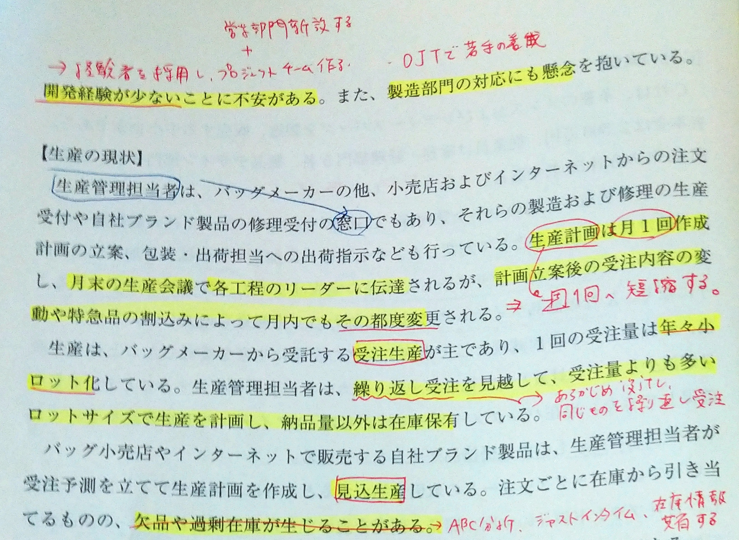 営業部門新設する
+
→ 経験者を採用し、プロジェクトチーム作る
・OJTで若手の養成
開発経験が少ないことに不安がある。また、製造部門の対応にも懸念を抱いている。
【生産の現状】
生産管理担当者は、バッグメーカーの他、小売店およびインターネットからの注文
受付や自社ブランド製品の修理受付の窓口でもあり、それらの製造および修理の生産
計画の立案、包装・出荷担当への出荷指示なども行っている。生産計画は月1回作成
し、月末の生産会議で各工程のリーダーに伝達されるが、計画立案後の受注内容の変
動や特急品の割込みによって月内でもその都度変更される。
→ 週1回へ短縮する。
生産は、バッグメーカーから受託する受注生産が主であり、1回の受注量は年々小
ロット化している。生産管理担当者は、繰り返し受注を見越して、受注量よりも多い
→ あらかじめ
同じものを繰り返し受注
ロットサイズで生産を計画し、納品量以外は在庫保有している。
バッグ小売店やインターネットで販売する自社ブランド製品は、生産管理担当者が
受注予測を立てて生産計画を作成し、見込生産している。注文ごとに在庫から引き当
てるものの、欠品や過剰在庫が生じることがある。
→ ABC分析、ジャストインタイム、在庫情報
共有する